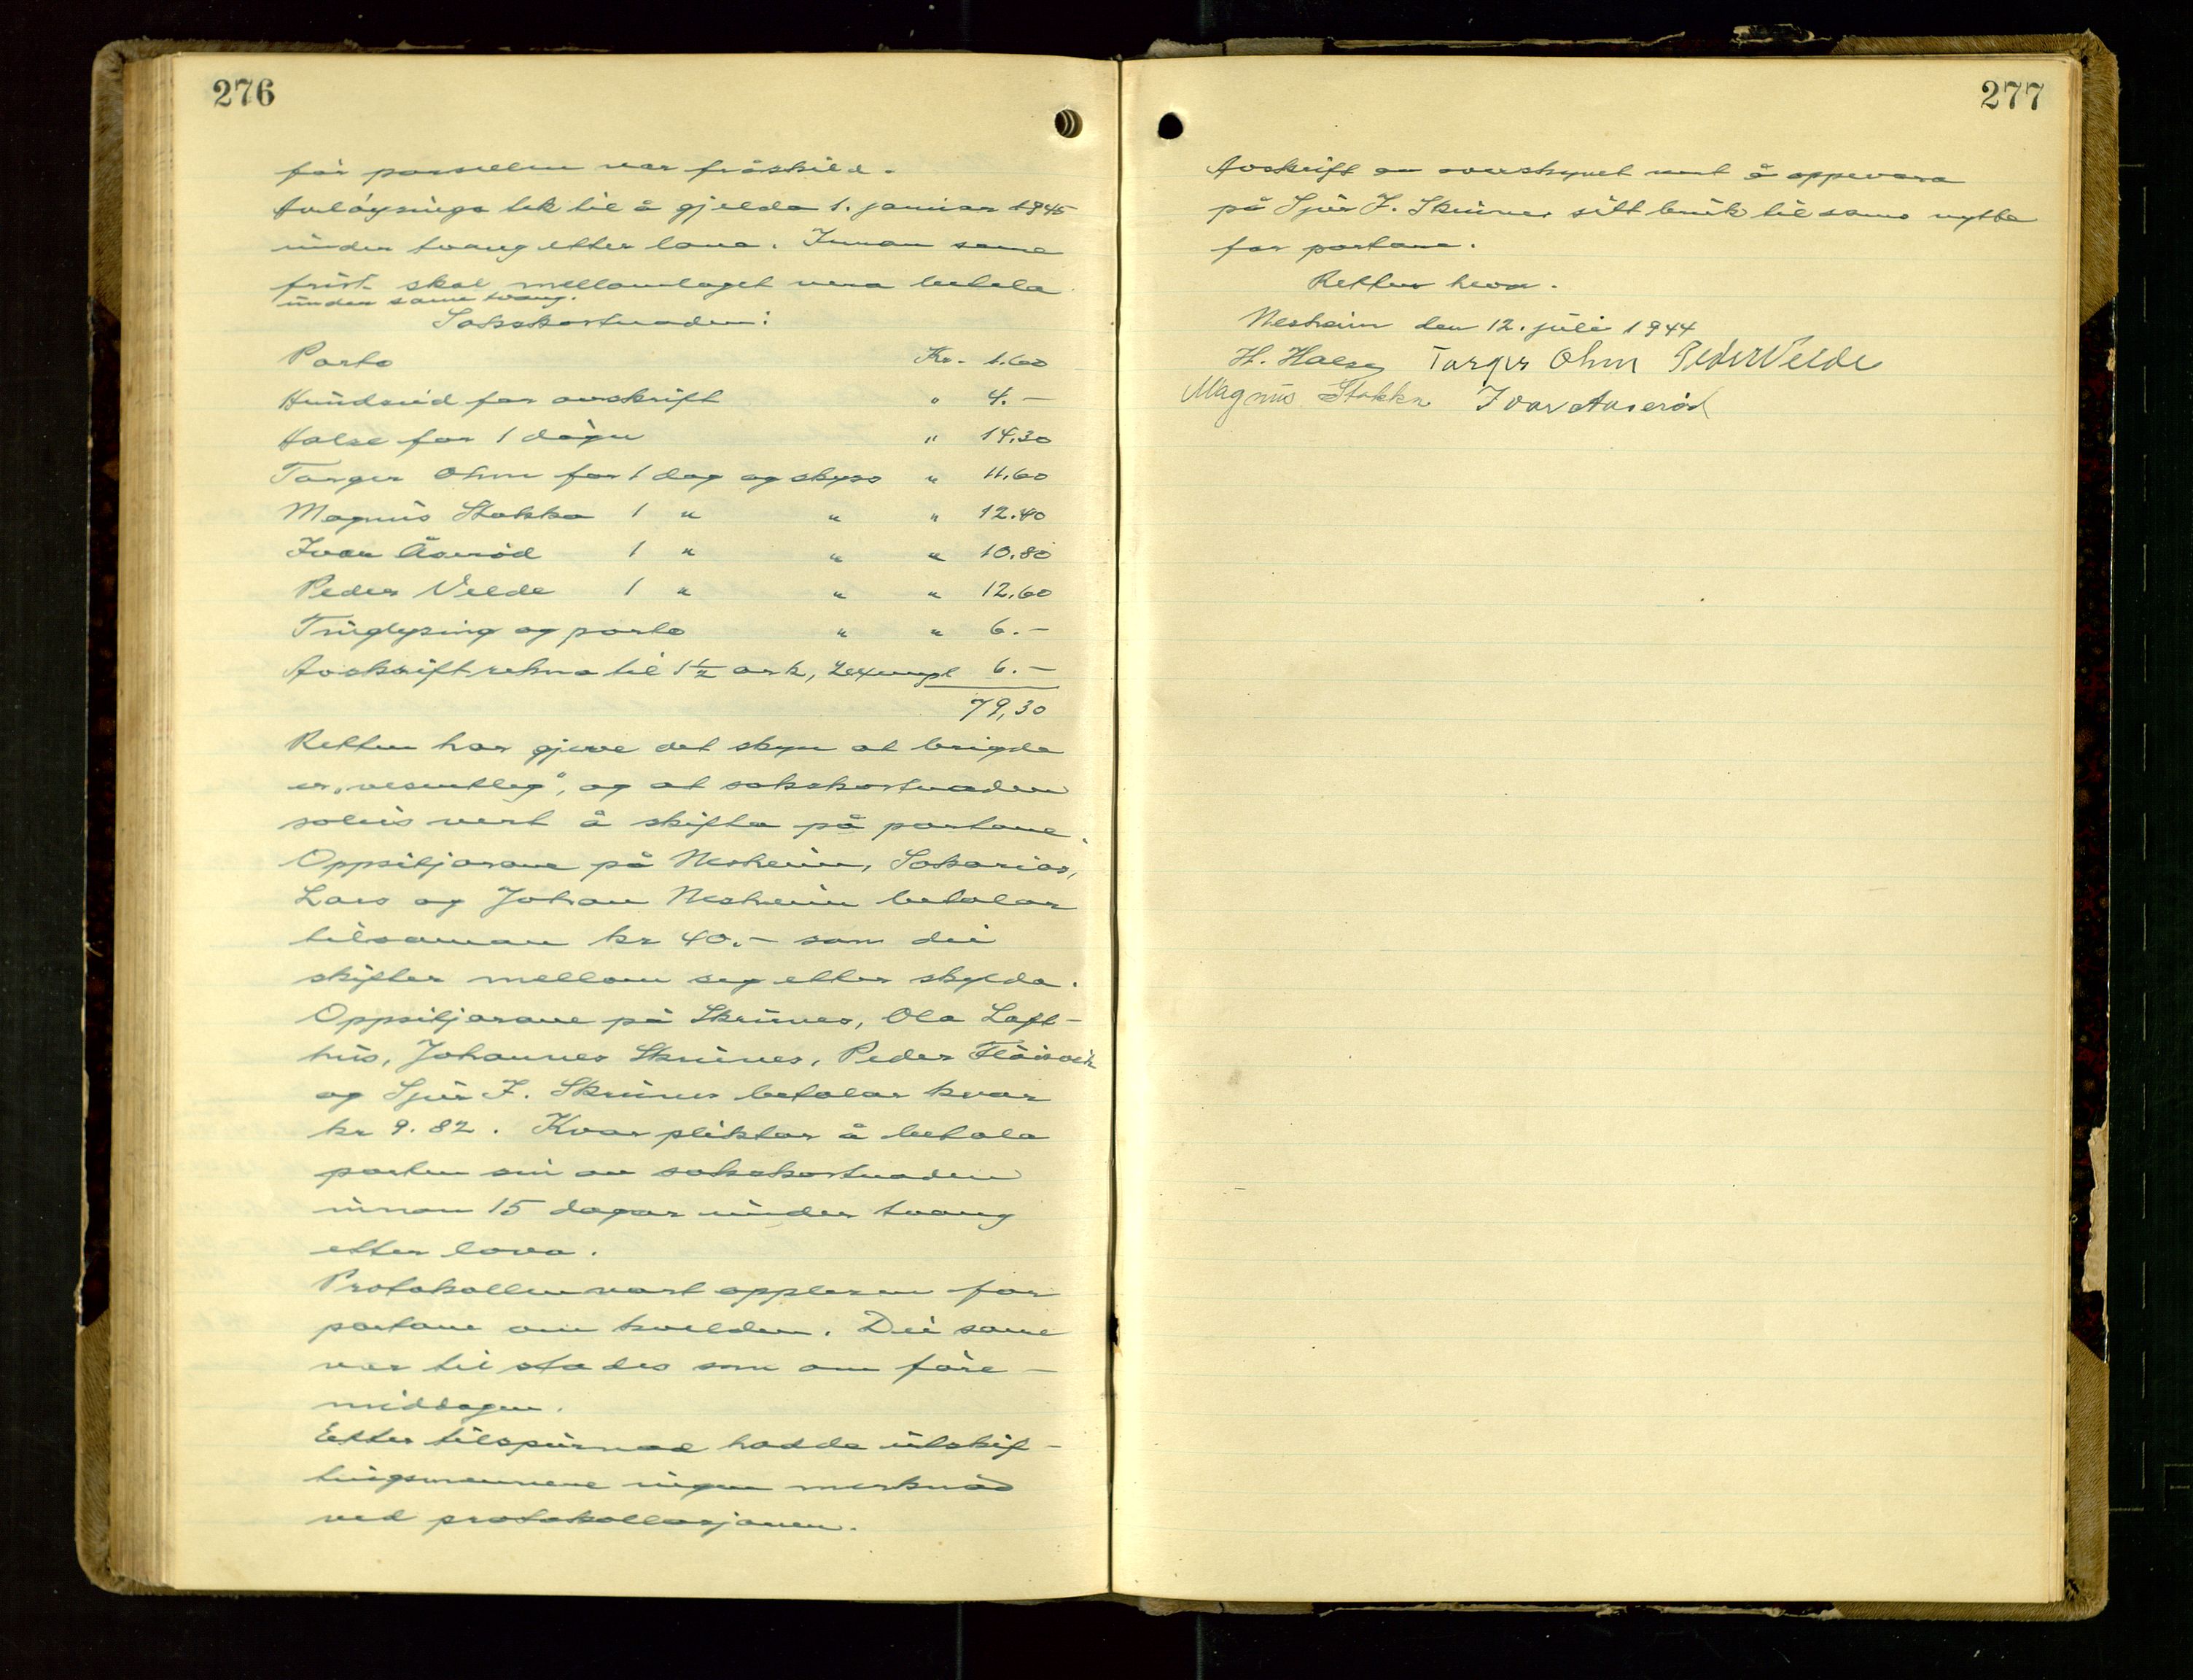 276
før parsellen var fråskild.
Avløysinga tek til å gjelda 1. januar 1945
under tvang etter lova. Innan same
frist skal mellomlaget vera betala
under same tvang.
Sakskostnaden:
Porto Kr. 1.60
Hundseid for avskrift " 4.-
Halse for 1 døgn " 14.30
Torger Ohm for 1 dag og skyss " 11.60
Magnus Stakka 1 " " " 12.40
Ivar Åserød 1 " " " 10.80
Peder Velde 1 " " " 12.60
Tinglysing og porto " " 6.-
Avskrift rekna til 1½ ark, 2 exempl 6.-
79,30
Retten har gjeve det skyn at brigda
er „vesentleg", og at sakskostnaden
soleis vert å skifta på partane.
Oppsitjarane på Nesheim, Sakarias,
Lars og Johan Nesheim betalar
tilsaman kr 40.- som dei
skifter mellom seg etter skylda.
Oppsitjarane på Skrunes, Ola Loft-
hus, Johannes Skrunes, Peder Fløisvik
og Sjur J. Skrunes betalar kvar
kr 9.82. Kvar pliktar å betala
parten sin av sakskostnaden
innan 15 dagar under tvang
etter lova.
Protokollen vart opplesen for
partane om kvelden. Dei same
var til stades som om føre-
middagen.
Etter tilspurnad hadde utskif-
tingsmennene ingen merknad
ved protokollasjonen.
277
Avskrift av overskynet vert å oppevara
på Sjur J. Skrunes sitt bruk til sams nytte
for partane.
Retten heva.
Nesheim den 12. juli 1944
H. Halse Torger Ohm Peder Velde
Magnus Stakka Ivar Aaserød